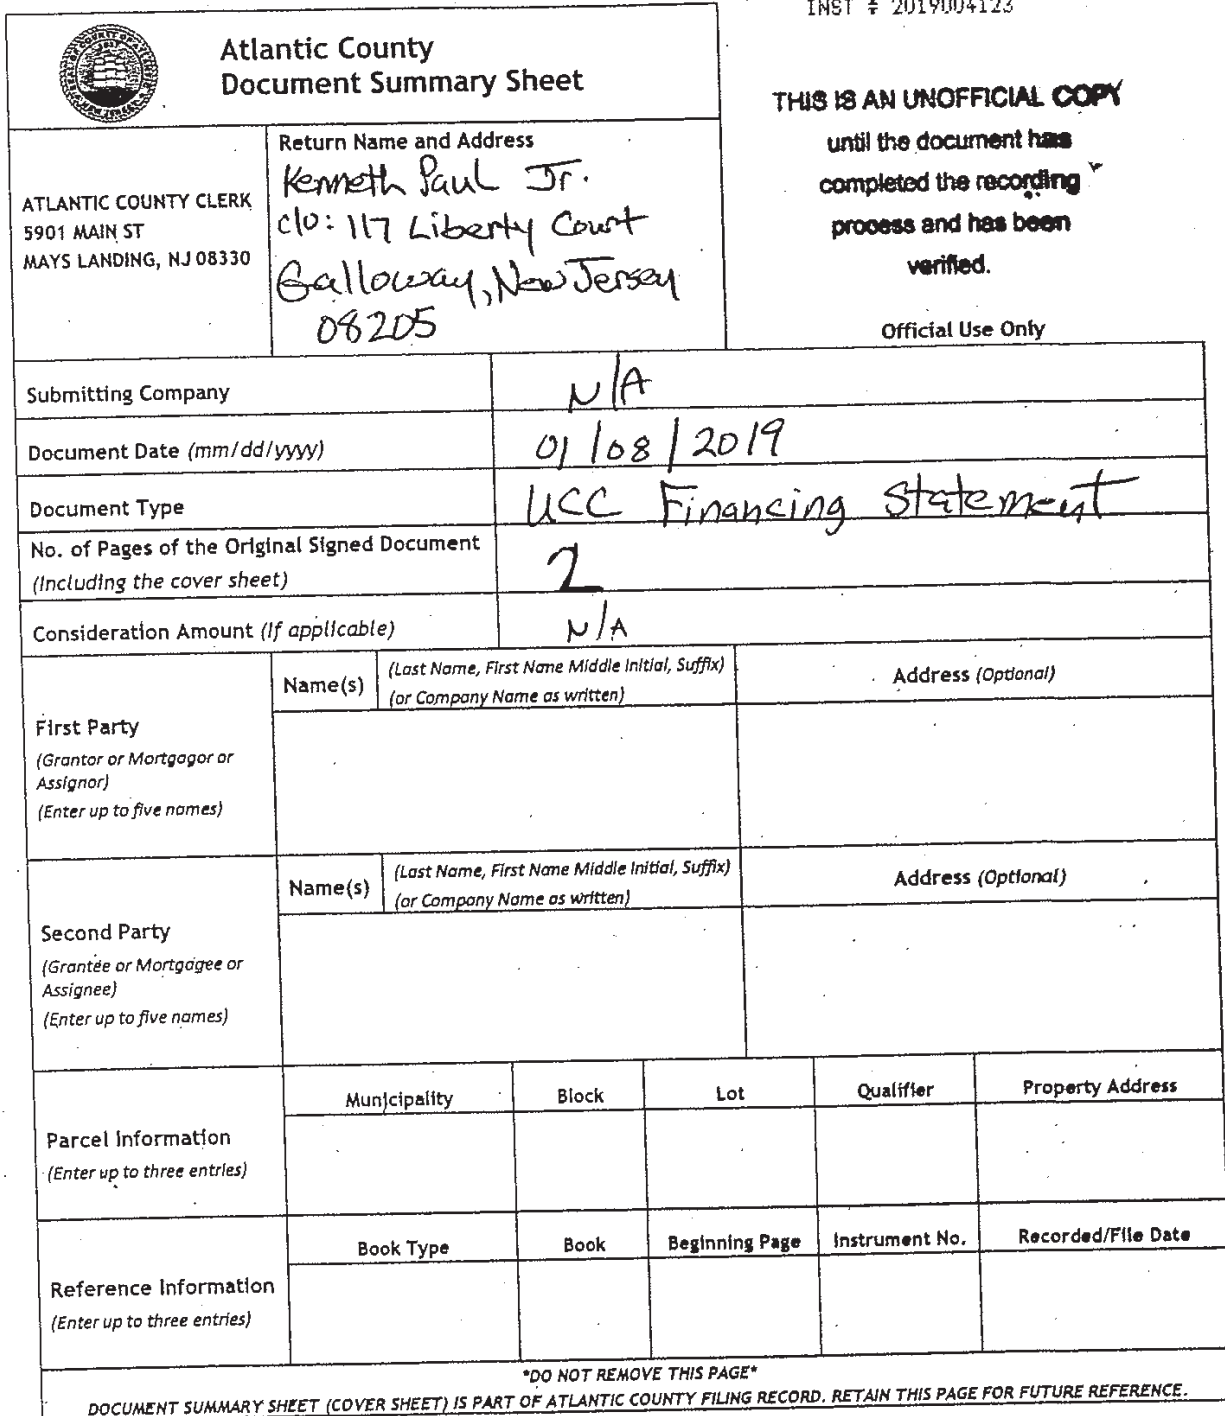 INST # 2019004123
Atlantic County
Document Summary Sheet
THIS IS AN UNOFFICIAL COPY
until the document has
completed the recording
process and has been
verified.
Official Use Only
ATLANTIC COUNTY CLERK
5901 MAIN ST
MAYS LANDING, NJ 08330
Return Name and Address
Kenneth Paul Jr.
c/o: 117 Liberty Court
Galloway, New Jersey
08205
Submitting Company
N/A
Document Date (mm/dd/yyyy)
01/08/2019
Document Type
UCC Financing Statement
No. of Pages of the Original Signed Document
(Including the cover sheet)
2
Consideration Amount (If applicable)
N/A
First Party
(Grantor or Mortgagor or
Assignor)
(Enter up to five names)
Name(s)
(Last Name, First Name Middle Initial, Suffix)
(or Company Name as written)
Address (Optional)
Second Party
(Grantee or Mortgagee or
Assignee)
(Enter up to five names)
Name(s)
(Last Name, First Name Middle Initial, Suffix)
(or Company Name as written)
Address (Optional)
Parcel Information
(Enter up to three entries)
Municipality
Block
Lot
Qualifier
Property Address
Reference Information
(Enter up to three entries)
Book Type
Book
Beginning Page
Instrument No.
Recorded/File Date
*DO NOT REMOVE THIS PAGE*
DOCUMENT SUMMARY SHEET (COVER SHEET) IS PART OF ATLANTIC COUNTY FILING RECORD. RETAIN THIS PAGE FOR FUTURE REFERENCE.